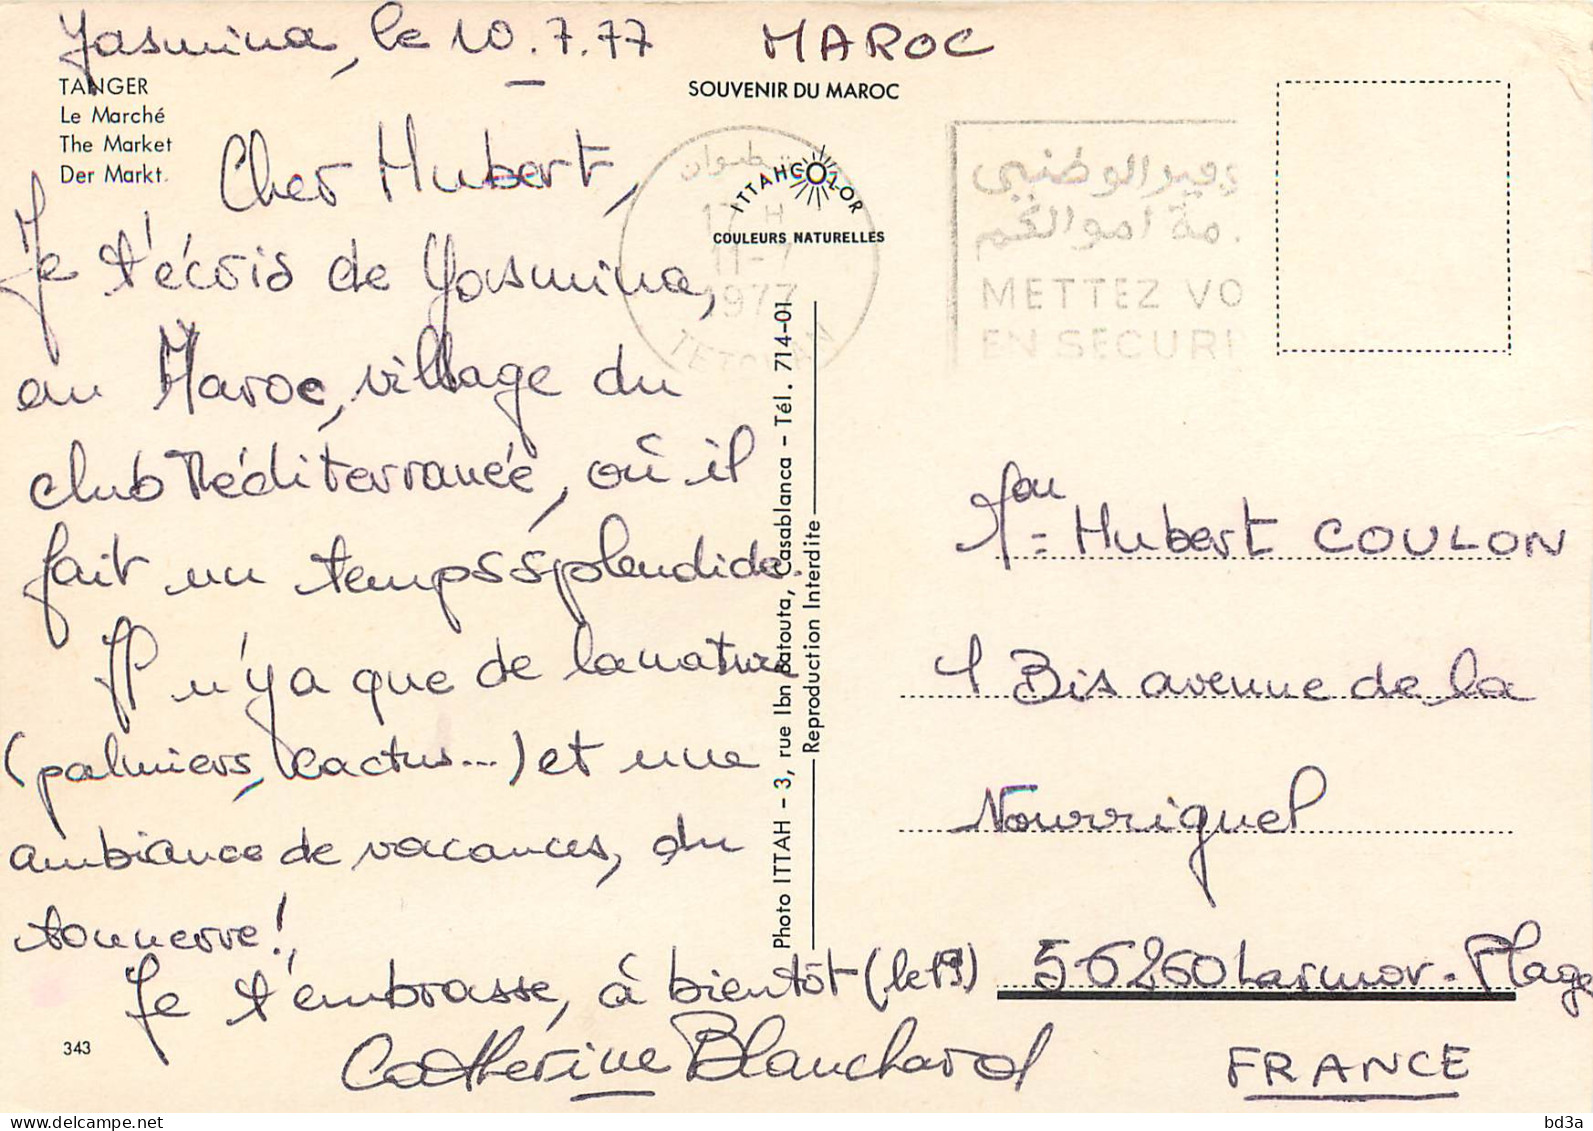 Yasmina, le 10.7.77 MAROC
TANGER
Le Marché
The Market
Der Markt.
SOUVENIR DU MAROC
ITTAHCOLOR
COULEURS NATURELLES
تطوان
17 H
11-7
1977
TETOUAN
METTEZ VO
EN SECURI
Cher Hubert,
Je t'écris de Yasmina,
au Maroc, village du
club Méditerranée, où il
fait un temps splendide.
Il n'y a que de la nature
(palmiers, cactus...) et une
ambiance de vacances, du
tonnerre!
Je t'embrasse, à bientôt (le 19)
Catherine Blanchard
343
Photo ITTAH - 3, rue Ibn Batouta, Casablanca - Tél. 714-01
Reproduction Interdite
Hubert COULON
1 Bis avenue de la
Nourriguel
56260 Larmor-Plage
FRANCE
bd3a